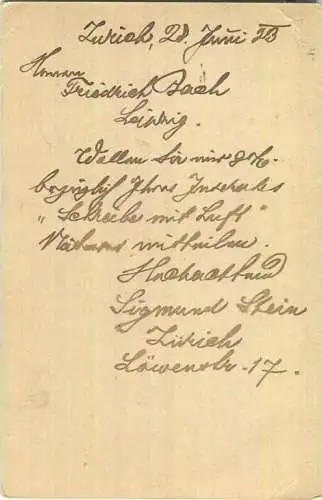 Zürich, 28. Juni
Herrn
Friedrich Bach
Leipzig.
Wollen Sie mir gefl.
bezüglich Ihres Inserates
"Schreibe mit Luft"
Näheres mitteilen.
Hochachtend
Sigmund Stein
Zürich
Löwenstr. 17.